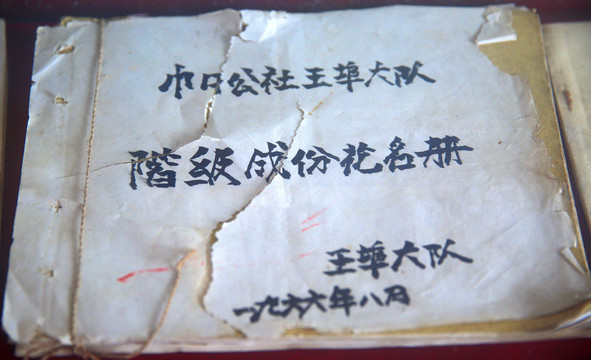 巾口公社王埠大队
階級成份花名册
王埠大队
一九六六年八月